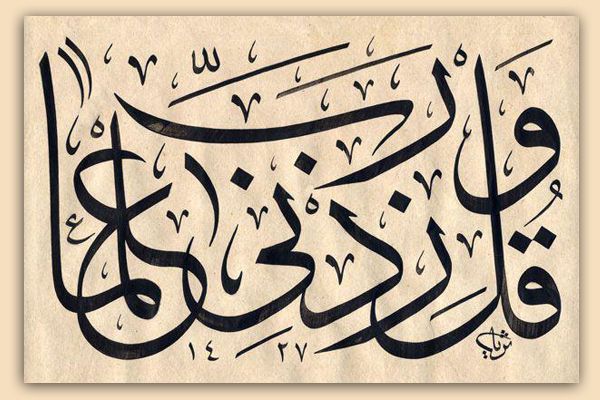 وَقُلْ رَبِّ زِدْنِي عِلْمًا
١٤٢٧